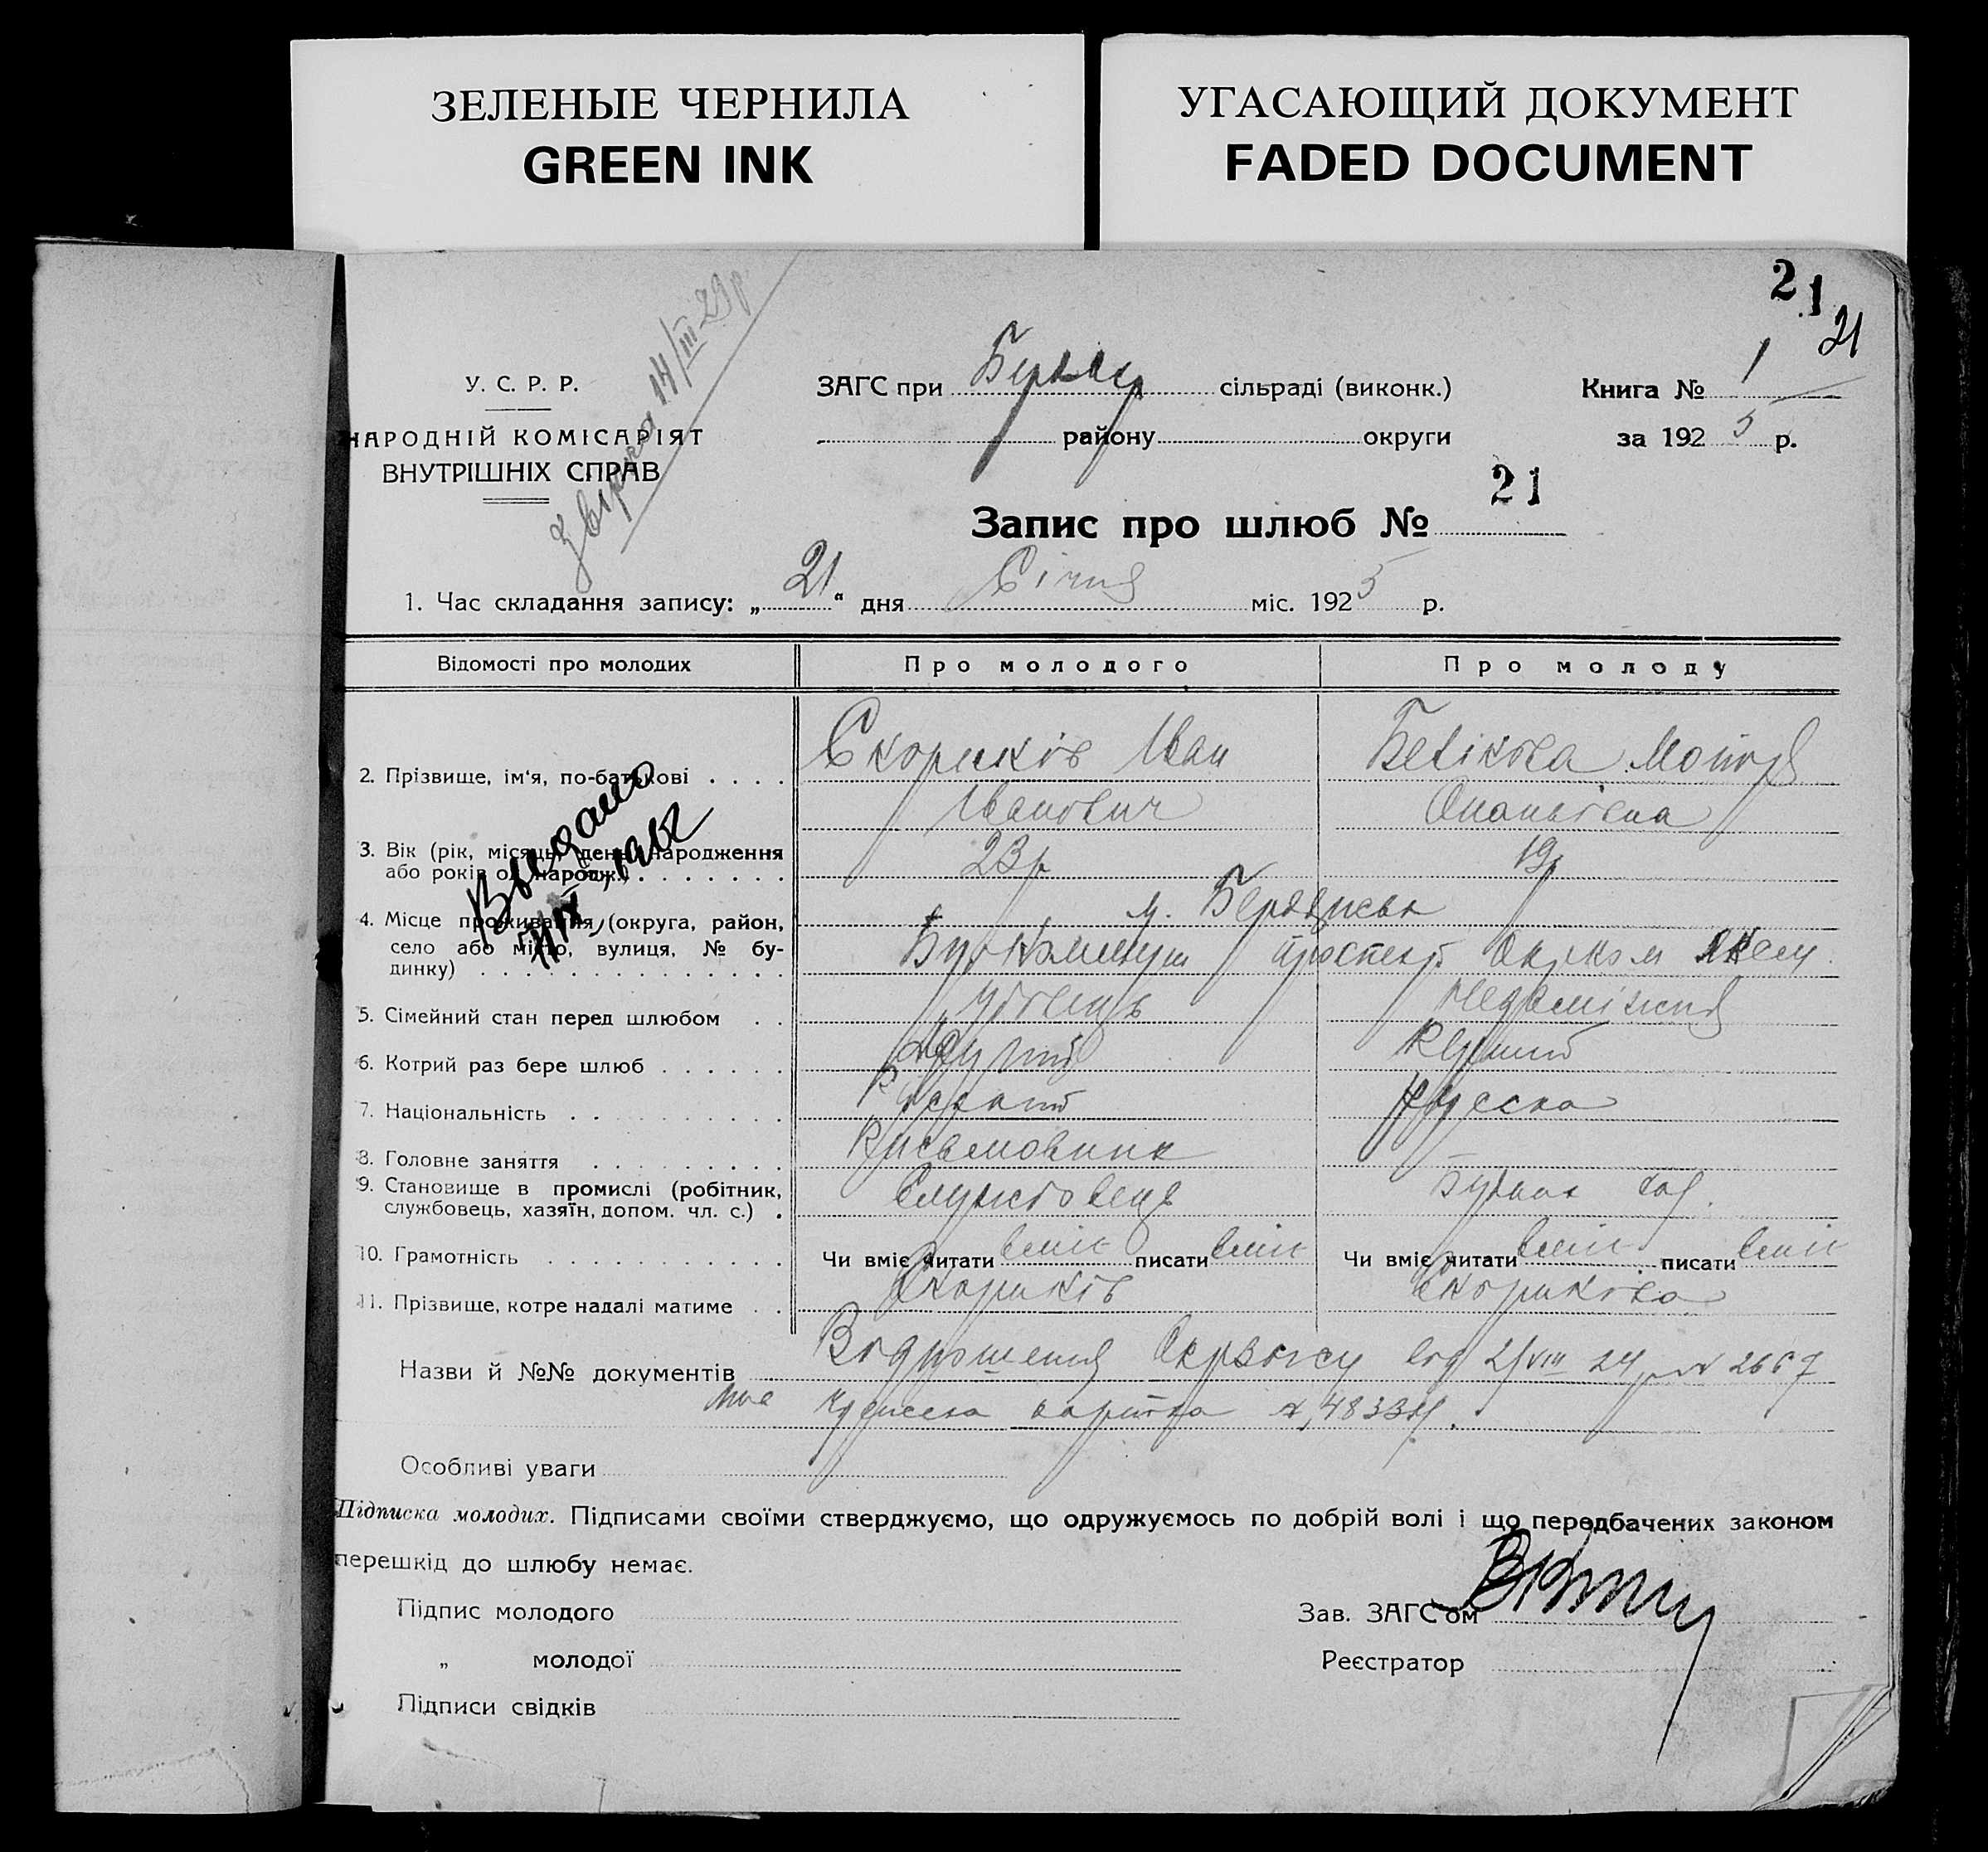 ЗЕЛЕНЫЕ ЧЕРНИЛА
GREEN INK
УГАСАЮЩИЙ ДОКУМЕНТ
FADED DOCUMENT
21
21
У. С. Р. Р.
НАРОДНІЙ КОМІСАРІЯТ
ВНУТРІШНІХ СПРАВ
14/III 29 р
ЗАГС при сільраді (виконк.)
району округи
Книга № 1
за 1925 р.
Запис про шлюб № 21
1. Час складання запису: „21“ дня Січня міс. 1925 р.
Відомості про молодих Про молодого Про молоду
2. Прізвище, ім'я, по-батькові . . . . Скориків Іван Бєлікова Мотря
Іванович Ананьївна
3. Вік (рік, місяць, день народження
або років од народж.) . . . . . . . 23 р 19 р
4. Місце проживання (округа, район,
село або місто, вулиця, № бу-
динку) . . . . . . . . . . . . . . .
м.
проспект
Видано
5. Сімейний стан перед шлюбом . . удовець
6. Котрий раз бере шлюб . . . . . . другий первий
7. Національність . . . . . . . . руска
8. Головне заняття . . . . . . . . . Письмовник
9. Становище в промислі (робітник,
службовець, хазяїн, допом. чл. с.) . Службовець
10. Грамотність . . . . . . . . . . . Чи вміє читати вміє писати вміє Чи вміє читати вміє писати вміє
11. Прізвище, котре надалі матиме . . Скориків Скорикова
Назви й №№ документів од 2/VIII 24 р № 2667
картка № 4833
Особливі уваги
Підписка молодих. Підписами своїми стверджуємо, що одружуємось по добрій волі і що передбачених законом
перешкід до шлюбу немає.
Підпис молодого Зав. ЗАГС'ом
„ молодої Реєстратор
Підписи свідків